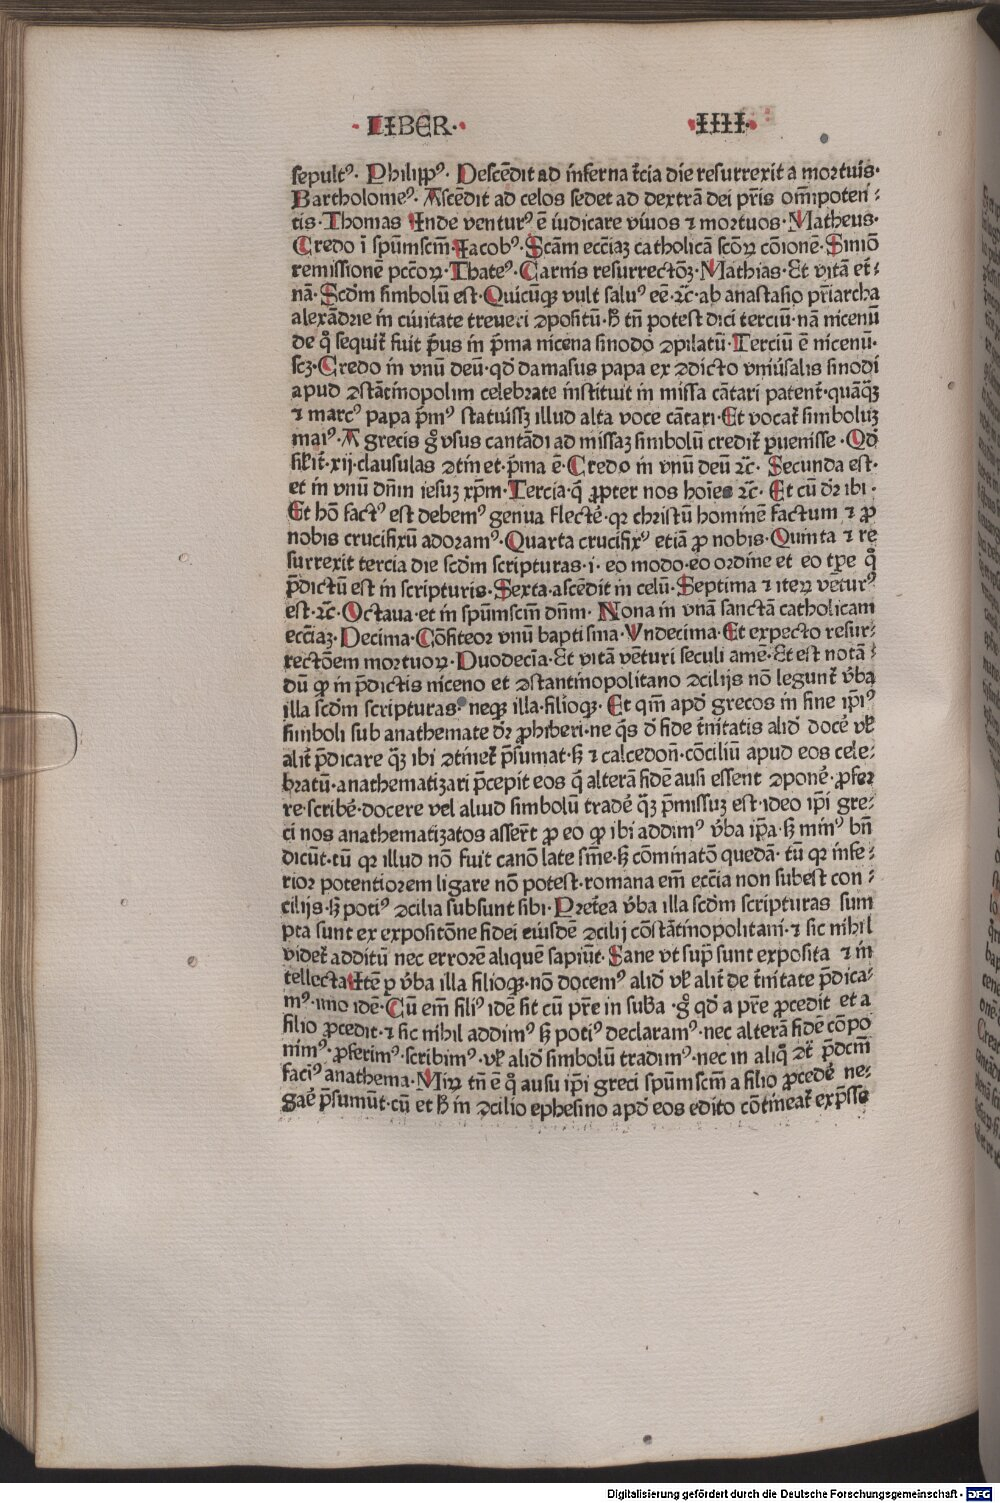 ·LIBER· ·IIII·
sepultꝰ· Philippꝰ· Descēdit ad īferna t̄cia die resurrexit a mortuis·
Bartholomeꝰ· Ascēdit ad celos sedet ad dextrā dei pr̄is om̄ipoten⸗
tis·Thomas Inde venturꝰ ē iudicare viuos ⁊ mortuos·Matheus·
Credo ī spūmscm̄·Jacobꝰ·Scām ecc̄iaꝫ catholicā scōꝝ cōionē·Simō
remissionē pccōꝝ·Thateꝰ·Carnis resurrectōꝫ·Mathias·Et vitā et̄⸗
nā·Scdm̄ simbolū est·Quicūqꝫ vult saluꝰ eē·⁊c̄·ab anastasio pr̄iarcha
alexādrie in ciuitate treueri ꝯpositū·hͦ tn̄ potest dici terciū·nā nicenū
de qͦ sequit᷑ fuit p̄us in p̄ma nicena sinodo ꝯpilatū·Terciū ē nicenū·
scꝫ·Credo in vnū deū·qd̓ damasus papa ex ꝯdicto vniūsalis sinodi
apud ꝯstātinopolim celebrate instituit in missa cātari patent᷑·quāqꝫ
⁊ marcꝰ papa p̄mꝰ statuissꝫ illud alta voce cātari·Et vocat᷑ simboluꝫ
maiꝰ·A grecis g̊ vsus cantādi ad missaꝫ simbolū credit᷑ ꝑuenisse·Qd̓
silit᷑·xij·clausulas ꝯtinet·p̄ma ē·Credo in vnū deū ⁊c̄· Secunda est·
et in vnū dn̄m iesuꝫ xp̄m·Tercia·q̄ ꝓpter nos hoīes ⁊c̄· Et cū dr̄ ibi·
Et hō factꝰ est debemꝰ genua flecte᷑·qꝛ christū hominē factum ⁊ ꝓ
nobis crucifixū adoramꝰ·Quarta crucifixꝰ etiā ꝓ nobis·Quinta ⁊ re
surrexit tercia die scdm̄ scripturas·i·eo modo·eo ordine et eo tꝑe qͦ
p̄dictū est in scripturis·Sexta·ascēdit in celū·Septima ⁊ iteꝝ vētur̄ꝰ
est·⁊c̄·Octaua·et in spūmscm̄ dn̄m· Nona in vnā sanctā catholicam
ecc̄iaꝫ·Decima·Cōfiteor vnū baptisma·Vndecima·Et expecto resur⸗
rectōem mortuoꝝ·Duodecīa·Et vitā vēturi seculi amē·Et est notā⸗
dū ꝙ in p̄dictis niceno et ꝯstantinopolitano ꝯcilijs nō legunt᷑ v̓ba
illa scdm̄ scripturas· neqꝫ illa·filioqꝫ· Et qm̄ apd̓ grecos in fine ip̄iꝰ
simboli sub anathemate dr̄ ꝓhiberi·ne q̄s d̓ fide t̓nitatis alid̓ doce᷑ vl̓
alit᷑ p̄dicare qꝫ ibi ꝯtinet᷑ p̄sumat·sꝫ ⁊ calcedon̄·cōciliū apud eos cele⸗
bratū·anathematizari p̄cepit eos q̄ alterā fidē ausi essent ꝯpone᷑·ꝓfer
re·scribe᷑·docere vel aliud simbolū trade᷑ qꝫ p̄missuꝫ est·ideo ip̄i gre⸗
ci nos anathematizatos asser̄t ꝓ eo ꝙ ibi addimꝰ v̓ba ip̄a·sꝫ minꝰ bn̄
dicūt·tū qꝛ illud nō fuit canō late sn̄ie·sꝫ cōminatō quedā·tū qꝛ infe⸗
rior potentiorem ligare nō potest·romana em̄ ecc̄ia non subest con⸗
cilijs·sꝫ potiꝰ ꝯcilia subsunt sibi·Preterea v̓ba illa scdm̄ scripturas sum
pta sunt ex expositōne fidei eiusdē ꝯcilij cōstātinopolitani·⁊ sic nihil
videt᷑ additū nec errorē aliquē sapiūt·Sane vt sup̄ sunt exposita ⁊ in
tellecta Itē ꝑ v̓ba illa filioqꝫ·nō docemꝰ alid̓ vl̓ alit᷑ de t̓nitate p̄dica⸗
mꝰ·imo idē·Cū em̄ filiꝰ idē sit cū pr̄e in suba ·g̊ qd̓ a pr̄e ꝓcedit et a
filio ꝓcedit·⁊ sic nihil addimꝰ sꝫ potiꝰ declaramꝰ·nec alterā fidē cōpo
nimꝰ·ꝓferimꝰ·scribimꝰ·vl̓ alid̓ simbolū tradimꝰ·nec in aliqͦ ꝯt̄ p̄dcm̄
faciꝰ anathema·Miꝝ tn̄ ē qͦ ausu ip̄i greci spūmscm̄ a filio ꝓcede᷑ ne⸗
gae᷑ p̄sumūt·cū et hͦ in ꝯcilio ephesino apd̓ eos edito cōtineat᷑ exp̄sse
Digitalisierung gefördert durch die Deutsche Forschungsgemeinschaft - DFG